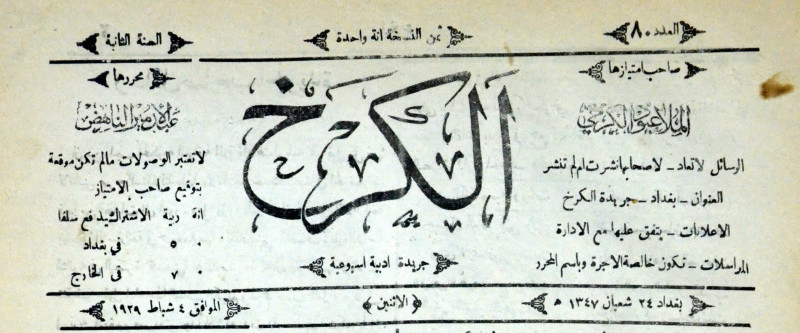 العدد ٨٠
ثمن النسخة انة واحدة
السنة الثانية
صاحب امتيازها
الملا عبود الكرخي
الكرخ
محررها
عبد الامير الناهض
الرسائل لا تعاد – لاصحابها نشرت ام لم تنشر
العنوان – بغداد – جريدة الكرخ
الاعلانات – يتفق عليها مع الادارة
المراسلات – تكون خالصة الاجرة وباسم المحرر
لا تعتبر الوصولات مالم تكن موقعة
بتوقيع صاحب الامتياز
انة ربية الاشتراك يدفع سلفا
٥ في بغداد
٧ في الخارج
جريدة ادبية اسبوعية
بغداد ٢٤ شعبان ١٣٤٧ ه
الاثنين
الموافق ٤ شباط ١٩٢٩